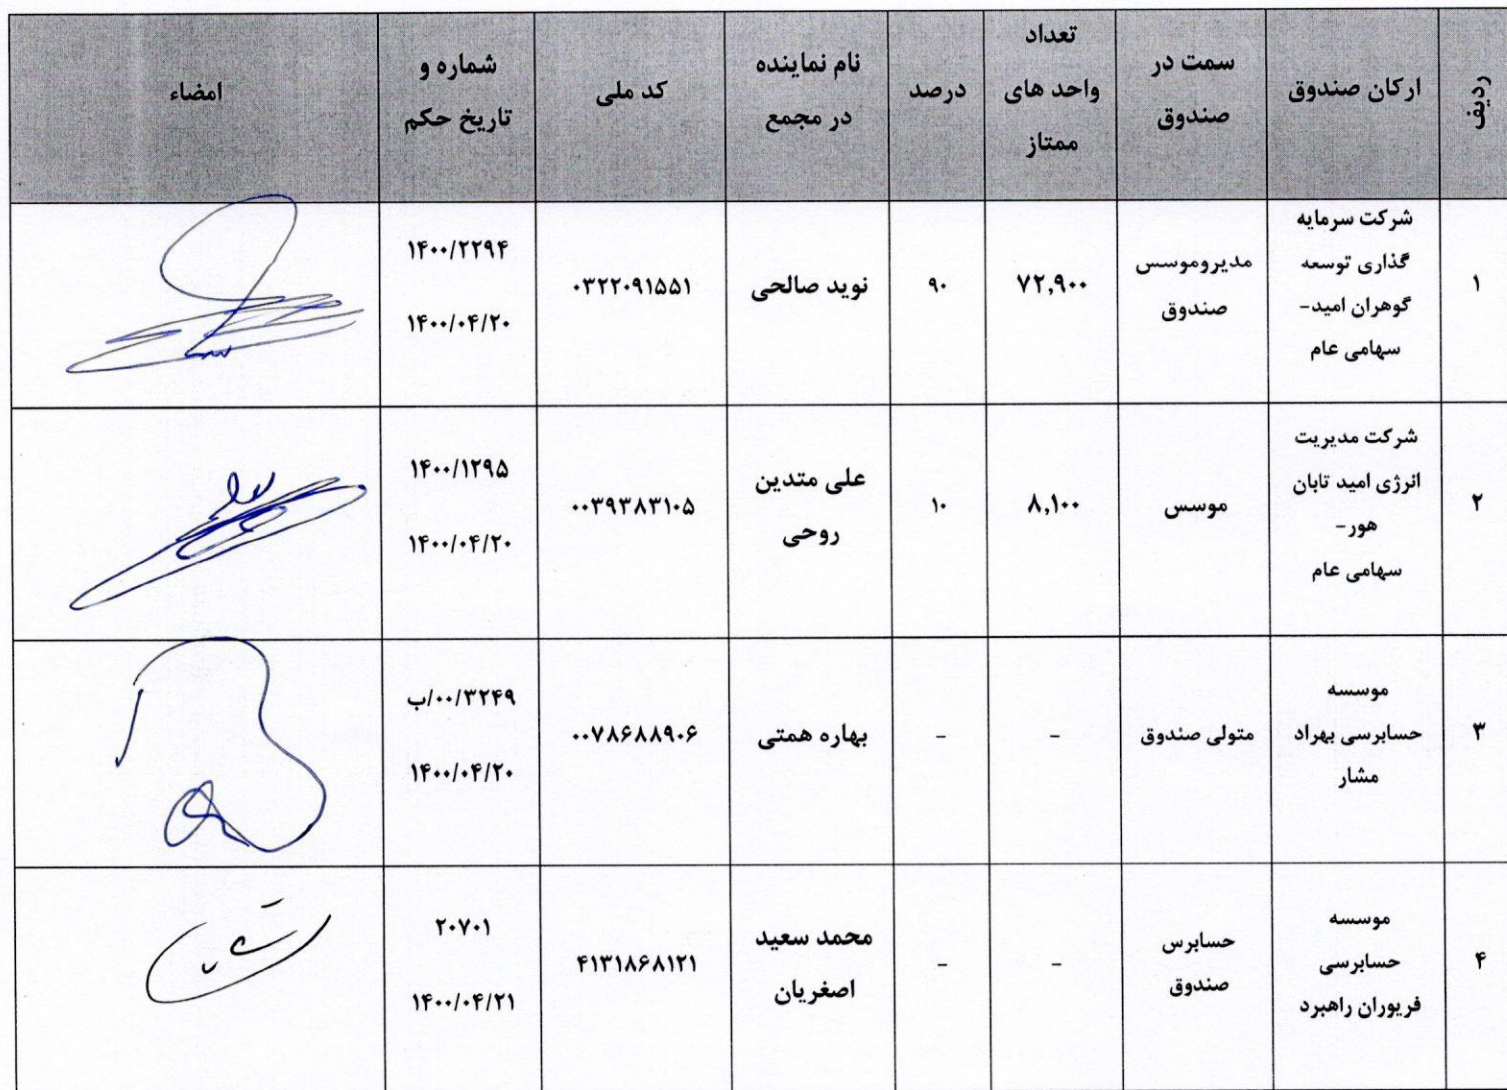 ردیف
ارکان صندوق
سمت در
صندوق
تعداد
واحد های
ممتاز
درصد
نام نماینده
در مجمع
کد ملی
شماره و
تاریخ حکم
امضاء
۱
شرکت سرمایه
گذاری توسعه
گوهران امید-
سهامی عام
مدیروموسس
صندوق
۷۲,۹۰۰
۹۰
نوید صالحی
۰۳۲۲۰۹۱۵۵۱
۱۴۰۰/۲۲۹۴
۱۴۰۰/۰۴/۲۰
۲
شرکت مدیریت
انرژی امید تابان
هور-
سهامی عام
موسس
۸,۱۰۰
۱۰
علی متدین
روحی
۰۰۳۹۳۸۳۱۰۵
۱۴۰۰/۱۲۹۵
۱۴۰۰/۰۴/۲۰
۳
موسسه
حسابرسی بهراد
مشار
متولی صندوق
-
-
بهاره همتی
۰۰۷۸۶۸۸۹۰۶
۰۰/۳۲۴۹/ب
۱۴۰۰/۰۴/۲۰
۴
موسسه
حسابرسی
فریوران راهبرد
حسابرس
صندوق
-
-
محمد سعید
اصغریان
۴۱۳۱۸۶۸۱۲۱
۲۰۷۰۱
۱۴۰۰/۰۴/۲۱